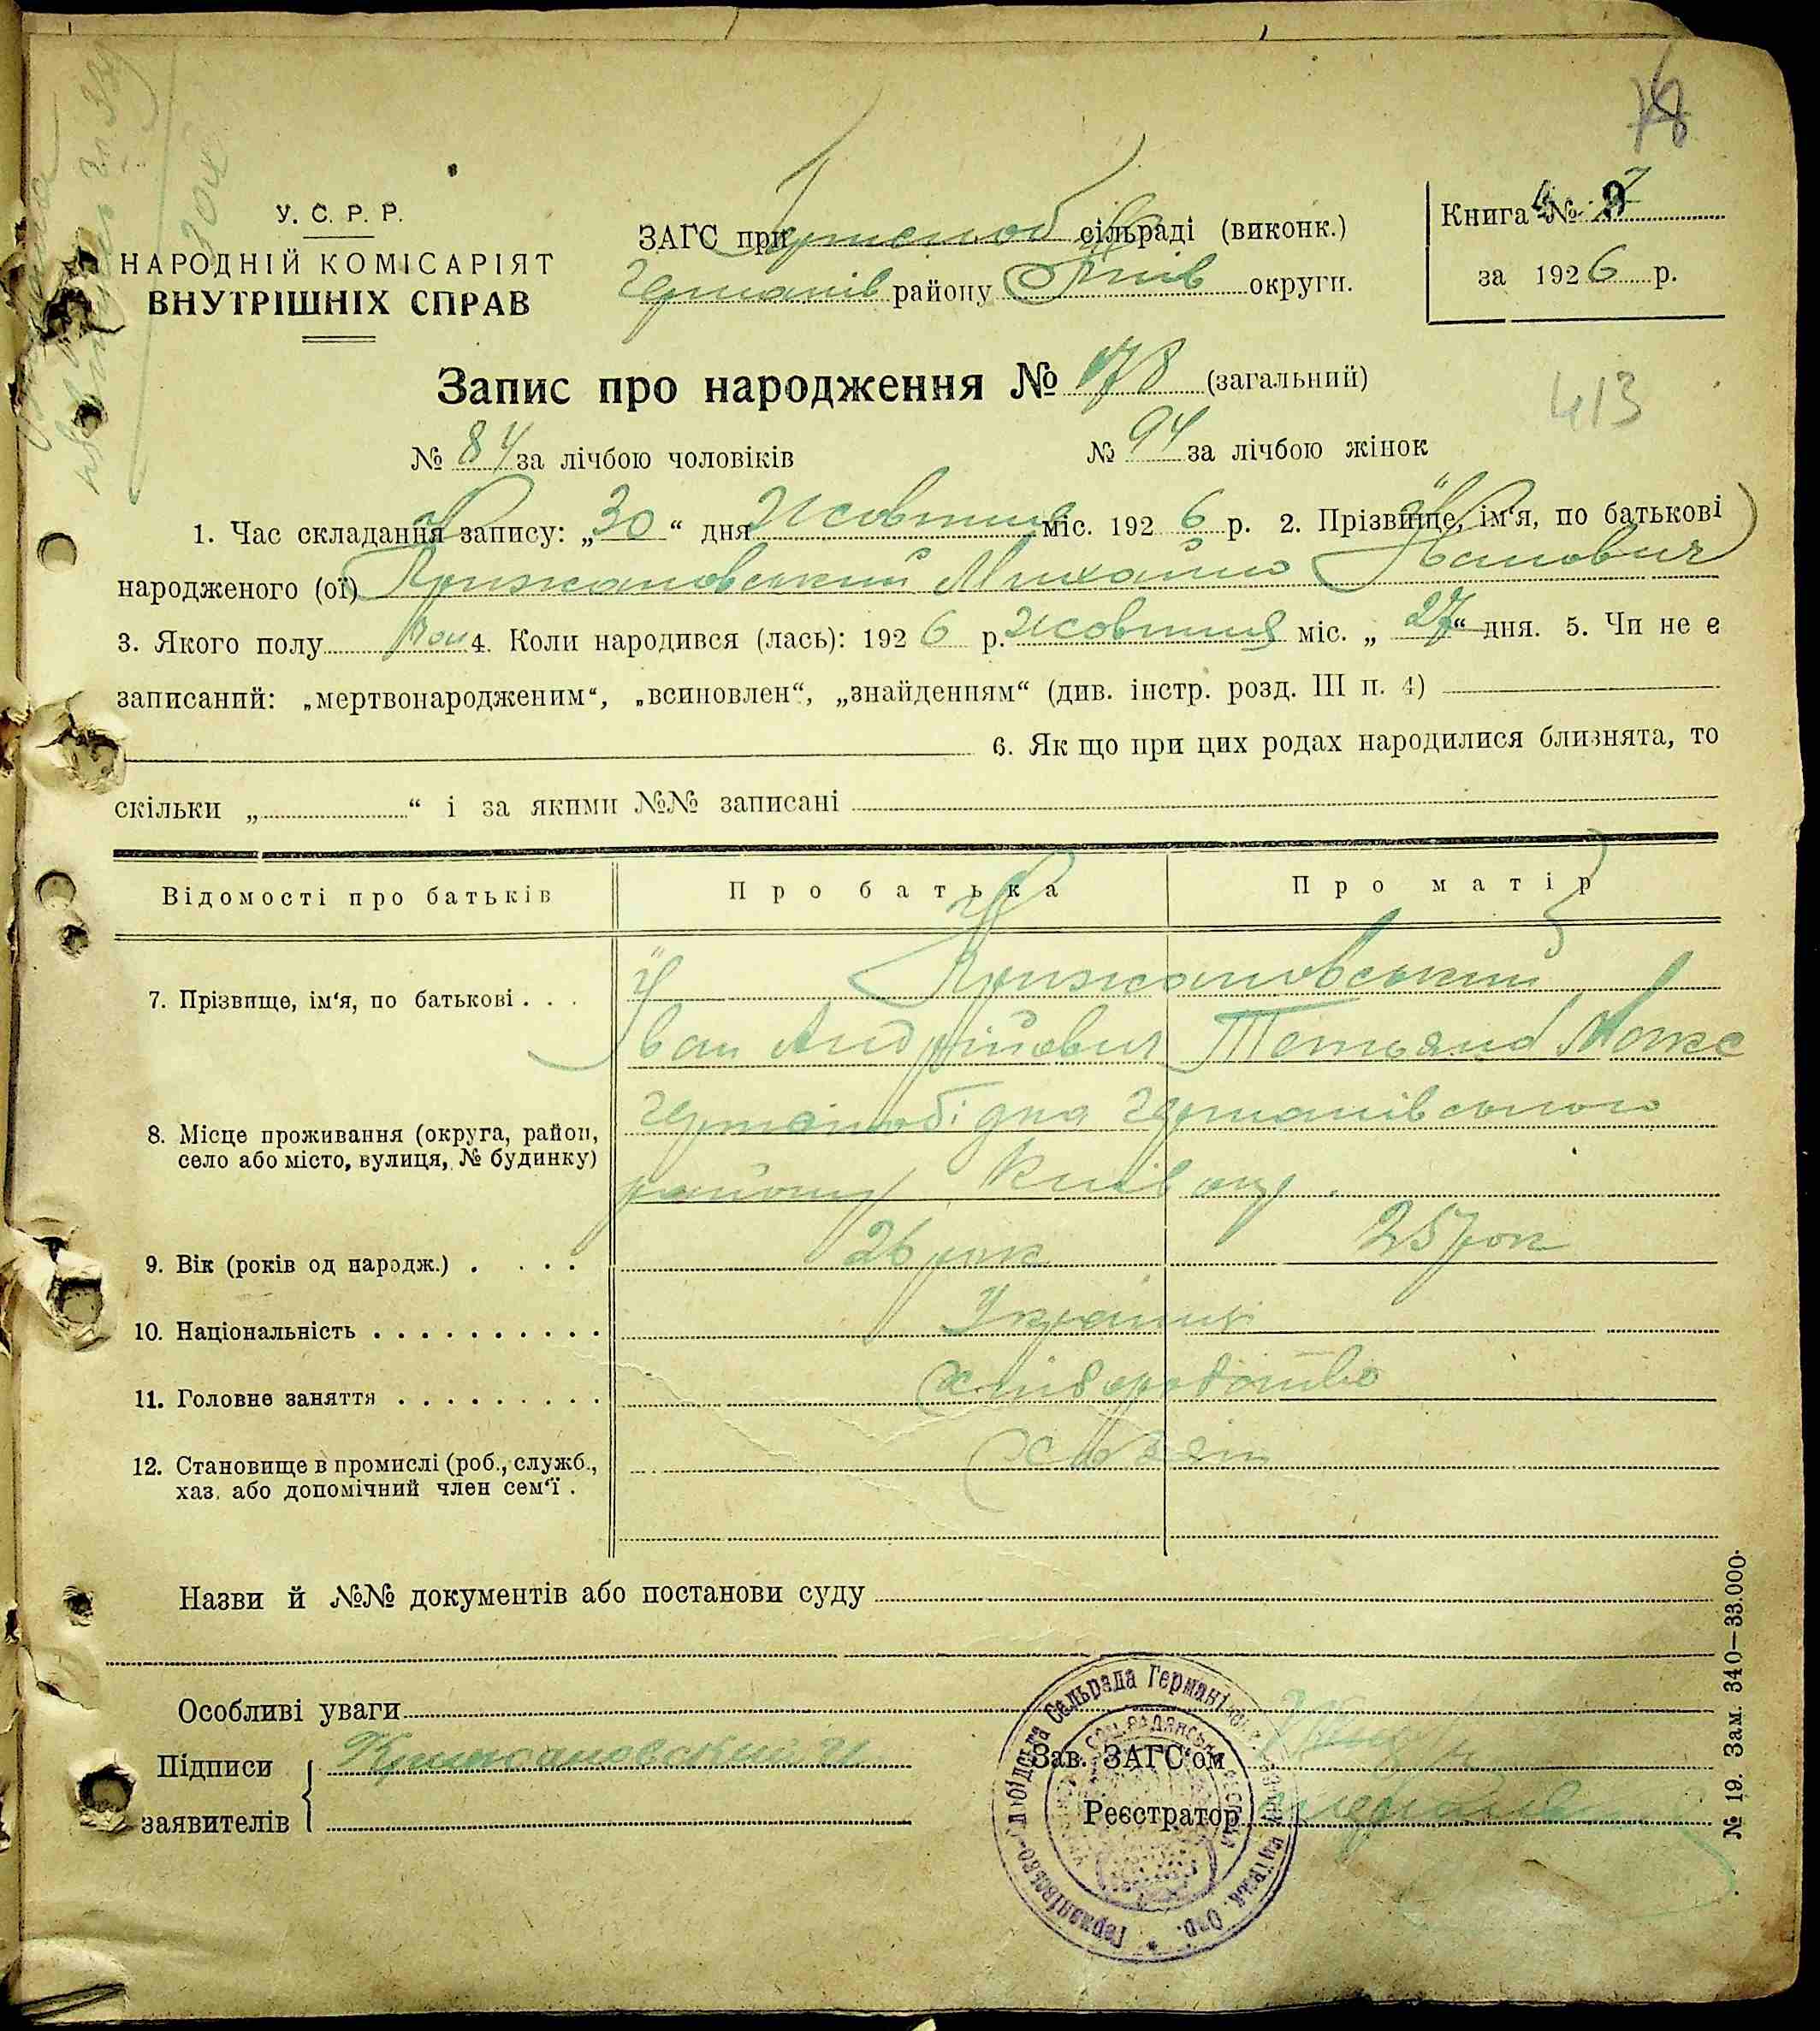 78
У. С. Р. Р.
НАРОДНІЙ КОМІСАРІЯТ
ВНУТРІШНІХ СПРАВ
ЗАГС при сільраді (виконк.)
Германів району Київ округи.
Книга № 9
за 1926 р.
Запис про народження № 178 (загальний)
413
№ 84 за лічбою чоловіків № 94 за лічбою жінок
1. Час складання запису: „30“ дня Жовтня міс. 1926 р. 2. Прізвище, ім‘я, по батькові
народженого (ої) Крижановський Михайло Іванович
3. Якого полу чол 4. Коли народився (лась): 1926 р. Жовтня міс. „27“ дня. 5. Чи не є
записаний: „мертвонародженим“, „всиновлен“, „знайденням“ (див. інстр. розд. III п. 4)
6. Як що при цих родах народилися близнята, то
скільки „ “ і за якими №№ записані
Відомості про батьків Про батька Про матір
7. Прізвище, ім‘я, по батькові . . . Крижановський
Іван Андрійович Тетьяна Макс
8. Місце проживання (округа, район,
село або місто, вулиця, № будинку)
Германівського
району Київ окр.
9. Вік (років од народж.) . . . . 26 рок 25 рок
10. Національність . . . . . . . . . . Українці
11. Головне заняття . . . . . . . . . хліборобство
12. Становище в промислі (роб., служб.,
хаз. або допомічний член сем‘ї .
Назви й №№ документів або постанови суду
Особливі уваги
Підписи Крижановский И
заявителів
Зав. ЗАГС‘ом
Реєстратор
№ 19. Зам. 340—33.000.